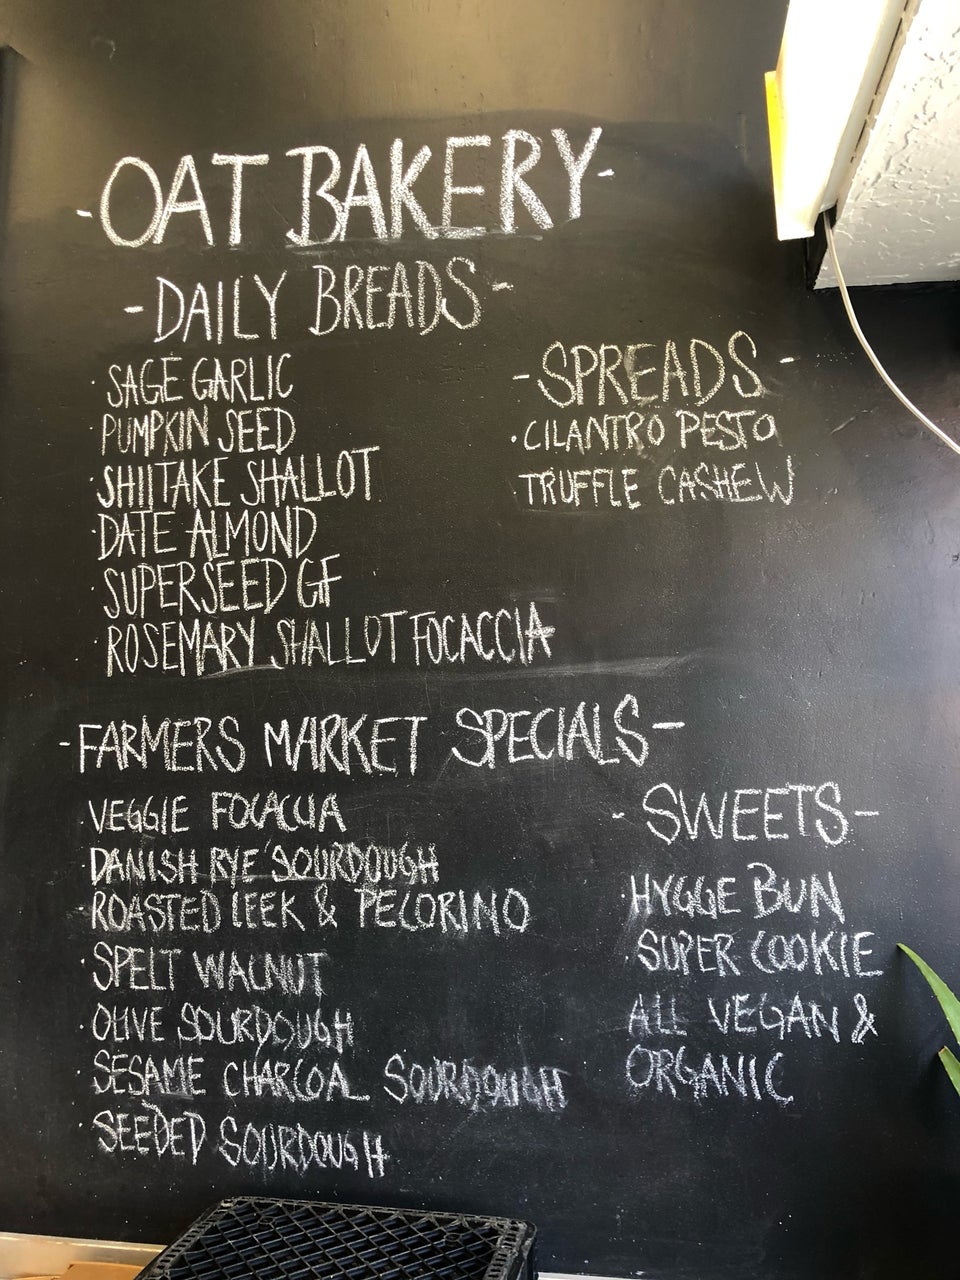 -OAT BAKERY-
-DAILY BREADS-
·SAGE GARLIC
·PUMPKIN SEED
·SHIITAKE SHALLOT
·DATE ALMOND
·SUPERSEED GF
·ROSEMARY SHALLOT FOCACCIA
-SPREADS-
·CILANTRO PESTO
·TRUFFLE CASHEW
-FARMERS MARKET SPECIALS-
·VEGGIE FOCACCIA
·DANISH RYE SOURDOUGH
·ROASTED LEEK & PECORINO
·SPELT WALNUT
·OLIVE SOURDOUGH
·SESAME CHARCOAL SOURDOUGH
·SEEDED SOURDOUGH
-SWEETS-
·HYGGE BUN
·SUPER COOKIE
ALL VEGAN &
ORGANIC